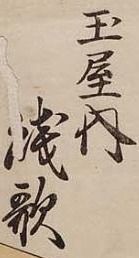 玉屋内
濃歌